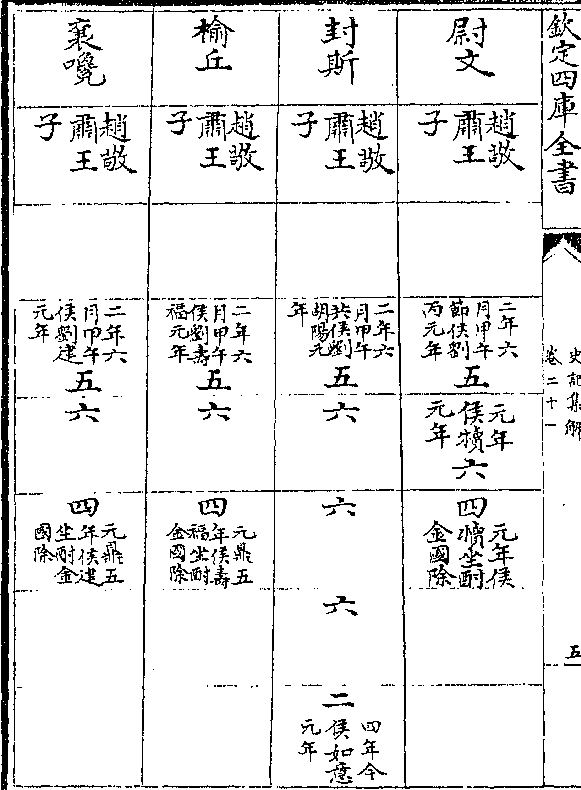 欽定四庫全書
史記集解
卷二十一
五
尉文
趙敬
肅王
子
二年六
月甲午
節侯劉
丙元年
五
元年
侯犢
元年
六
四
元年侯
犢坐酎
金國除
封斯
趙敬
肅王
子
二年六
月甲午
共侯劉
胡陽元
年
五
六
六
六
二
四年今
侯如意
元年
榆丘
趙敬
肅王
子
二年六
月甲午
侯劉壽
福元年
五
六
四
元鼎五
年侯壽
福坐酎
金國除
襄嚵
趙敬
肅王
子
二年六
月甲午
侯劉建
元年
五
六
四
元鼎五
年侯建
坐酎金
國除